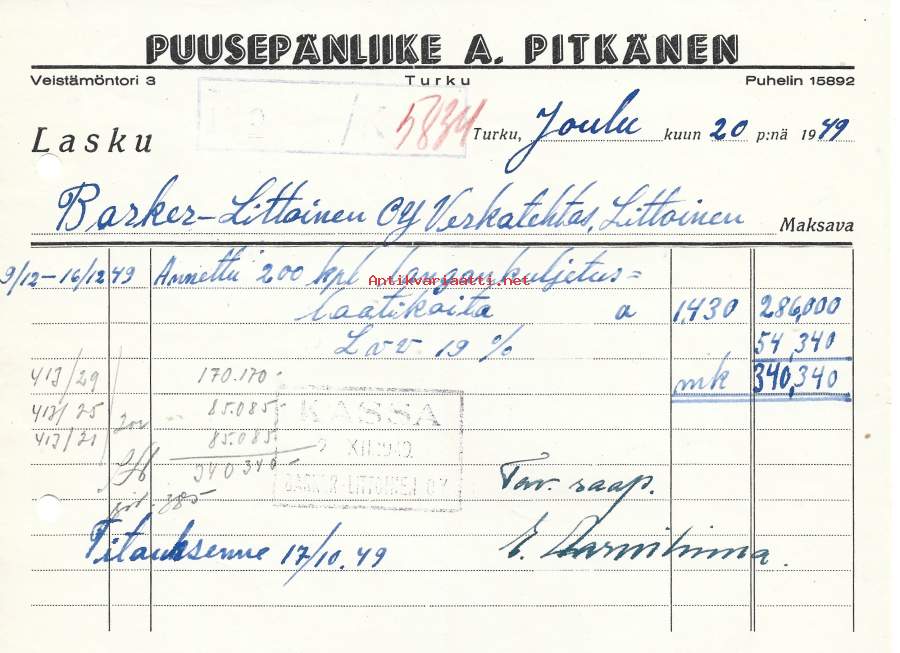 PUUSEPÄNLIIKE A. PITKÄNEN
Veistämöntori 3 Turku Puhelin 15892
5834
Lasku Turku, Joulu kuun 20 p:nä 1949
Barker-Littoinen OY Verkatehtas, Littoinen Maksava
9/12-16/12 49 Annettu 200 kpl langankuljetus=
Antikvariaatti.net
laatikoita a 1,430 286,000
Lvv 19 % 54,340
413/29 170.170- mk 340,340
413/25 85.085-
KASSA
413/21 85.085
XII.1949
340 340-
BARKER-LITTOINEN O.Y.
385-
Tav. saap.
Tilauksenne 17/10.49
E.